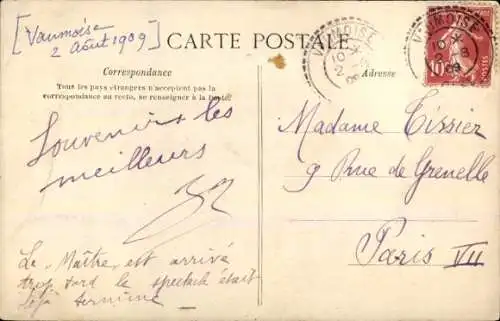 [Vaumoise
2 Août 1909]
CARTE POSTALE
Correspondance
Tous les pays étrangers n'acceptent pas la
correspondance au recto, se renseigner à la Poste
Adresse
VAUMOISE
10
2 -8
09
VAUMOISE
10
-8
09
10
POSTES
Souvenirs les
meilleurs
Le "Maître" est arrivé
trop tard le spectacle était
déjà terminé
Madame Tissier
9 Rue de Grenelle
Paris VII